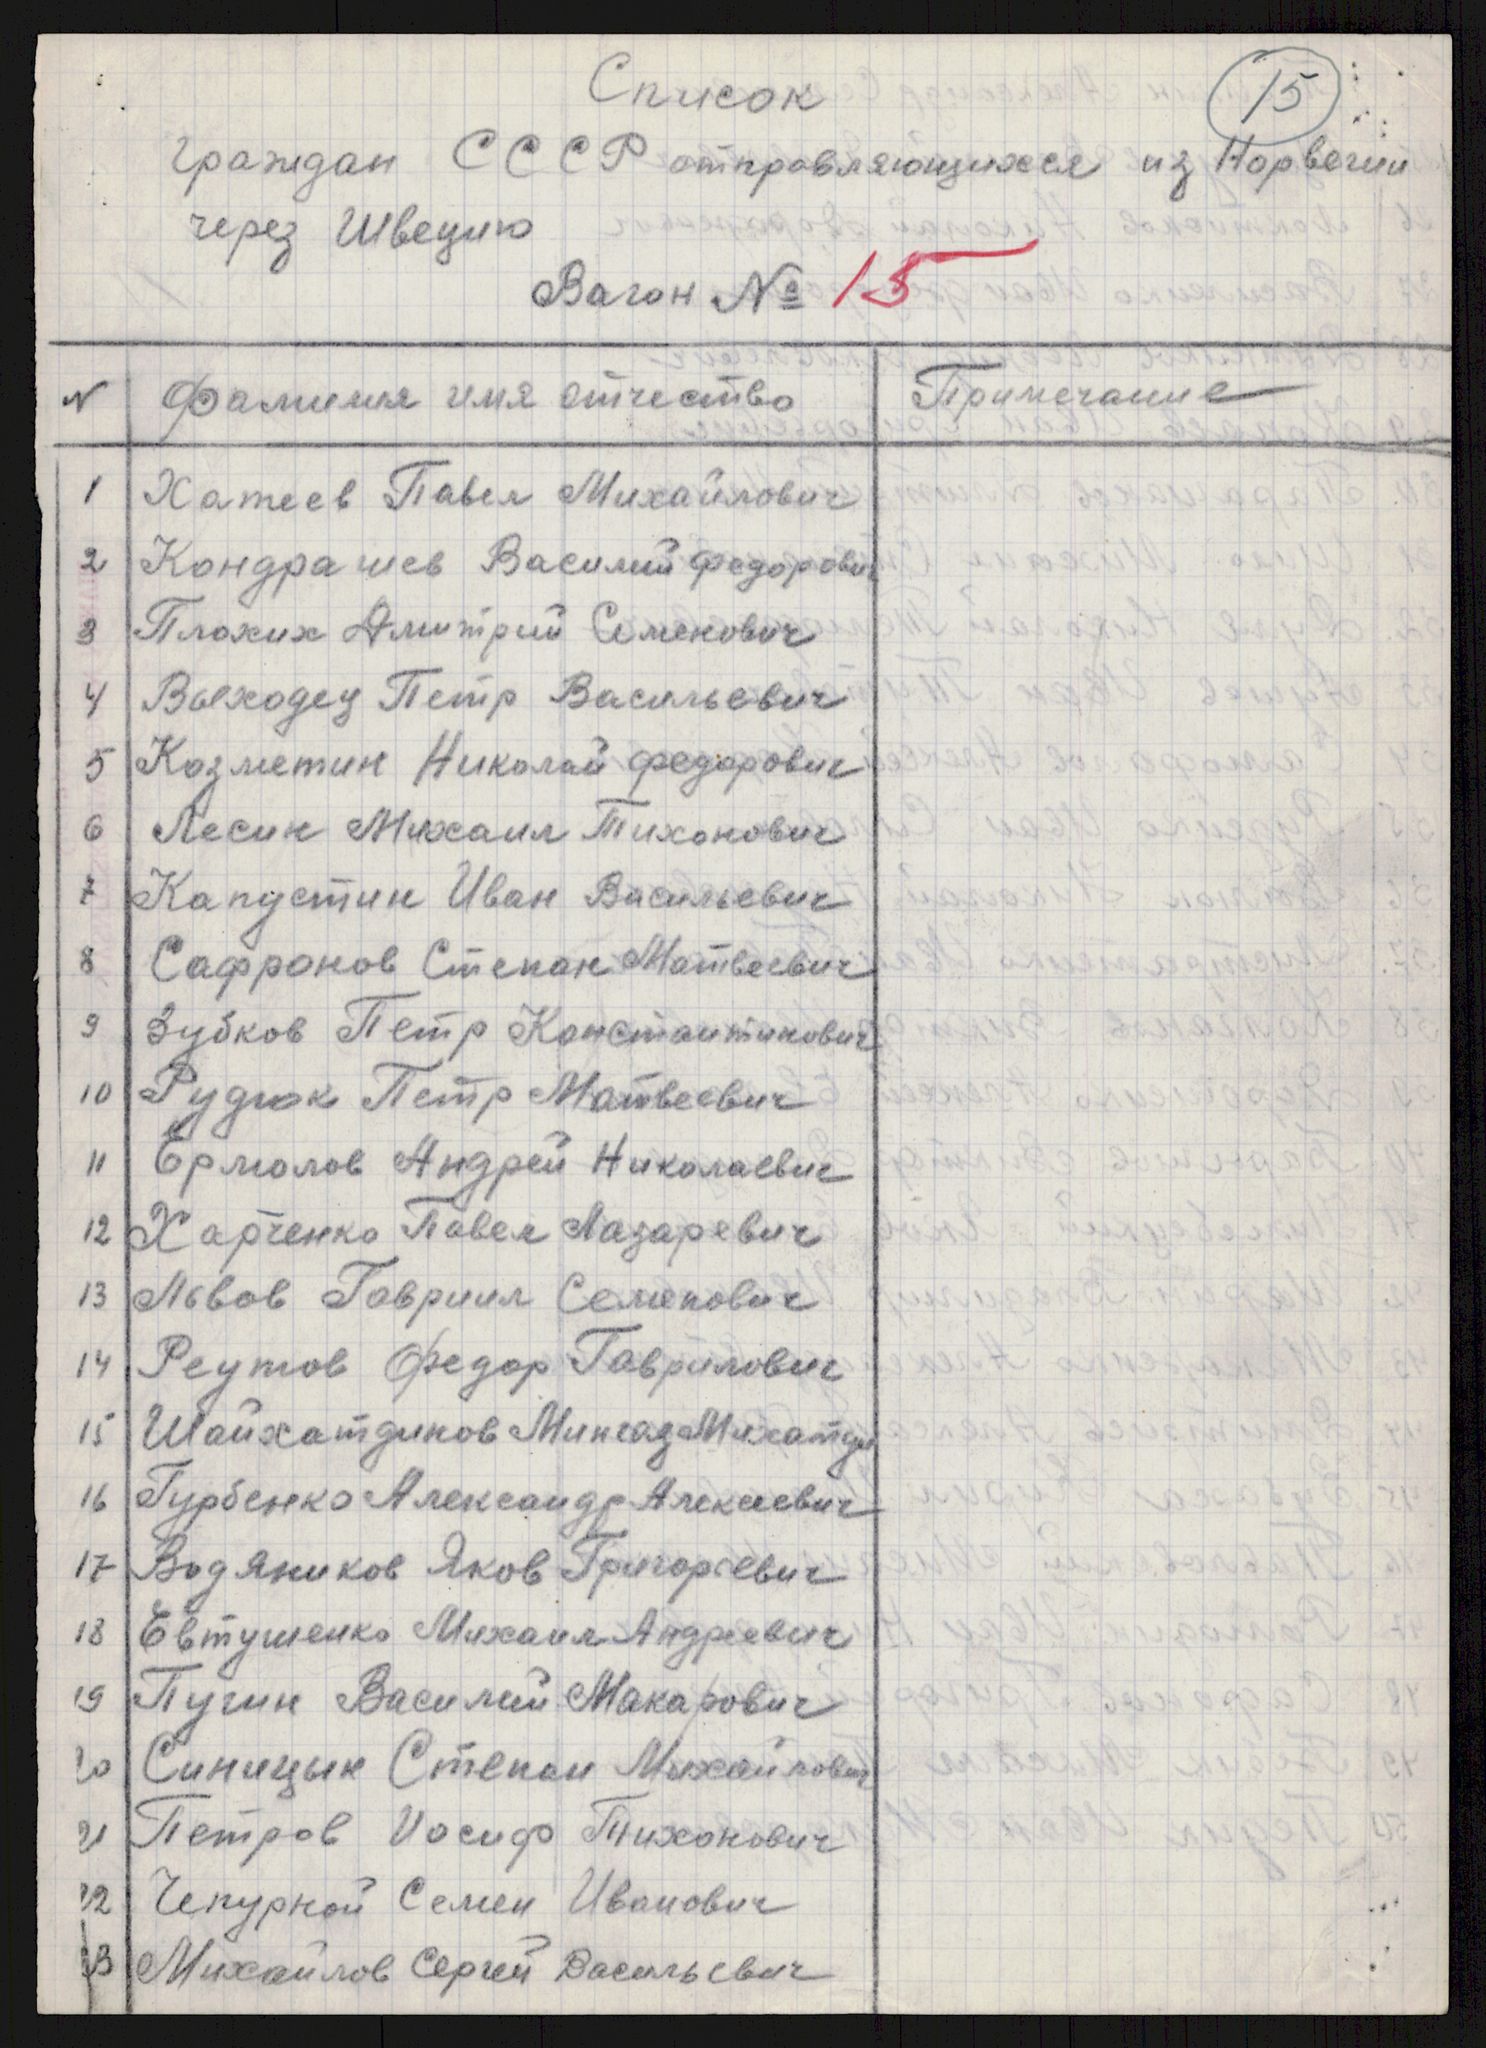 Список
15
граждан СССР отправляющихся из Норвегии
через Швецию
Вагон № 15
N Фамилия имя отчество Примечание
1 Хатеев Павел Михайлович
2 Кондрашев Василий Федорович
3 Плохих Дмитрий Семенович
4 Выходец Петр Васильевич
5 Козметин Николай Федорович
6 Лесин Михаил Тихонович
7 Капустин Иван Васильевич
8 Сафронов Степан Матвеевич
9 Зубков Петр Константинович
10 Рудюк Петр Матвеевич
11 Ермолов Андрей Николаевич
12 Харченко Павел Лазаревич
13 Львов Гавриил Семенович
14 Реутов Федор Гаврилович
15 Шайхатдинов Мингаз
16 Гурбенко Александр Алексеевич
17 Водяников Яков Григорьевич
18 Евтушенко Михаил Андреевич
19 Пугин Василий Макарович
20 Синицын Степан Михайлович
21 Петров Иосиф Тихонович
22 Чепурной Семен Иванович
23 Михайлов Сергей Васильевич